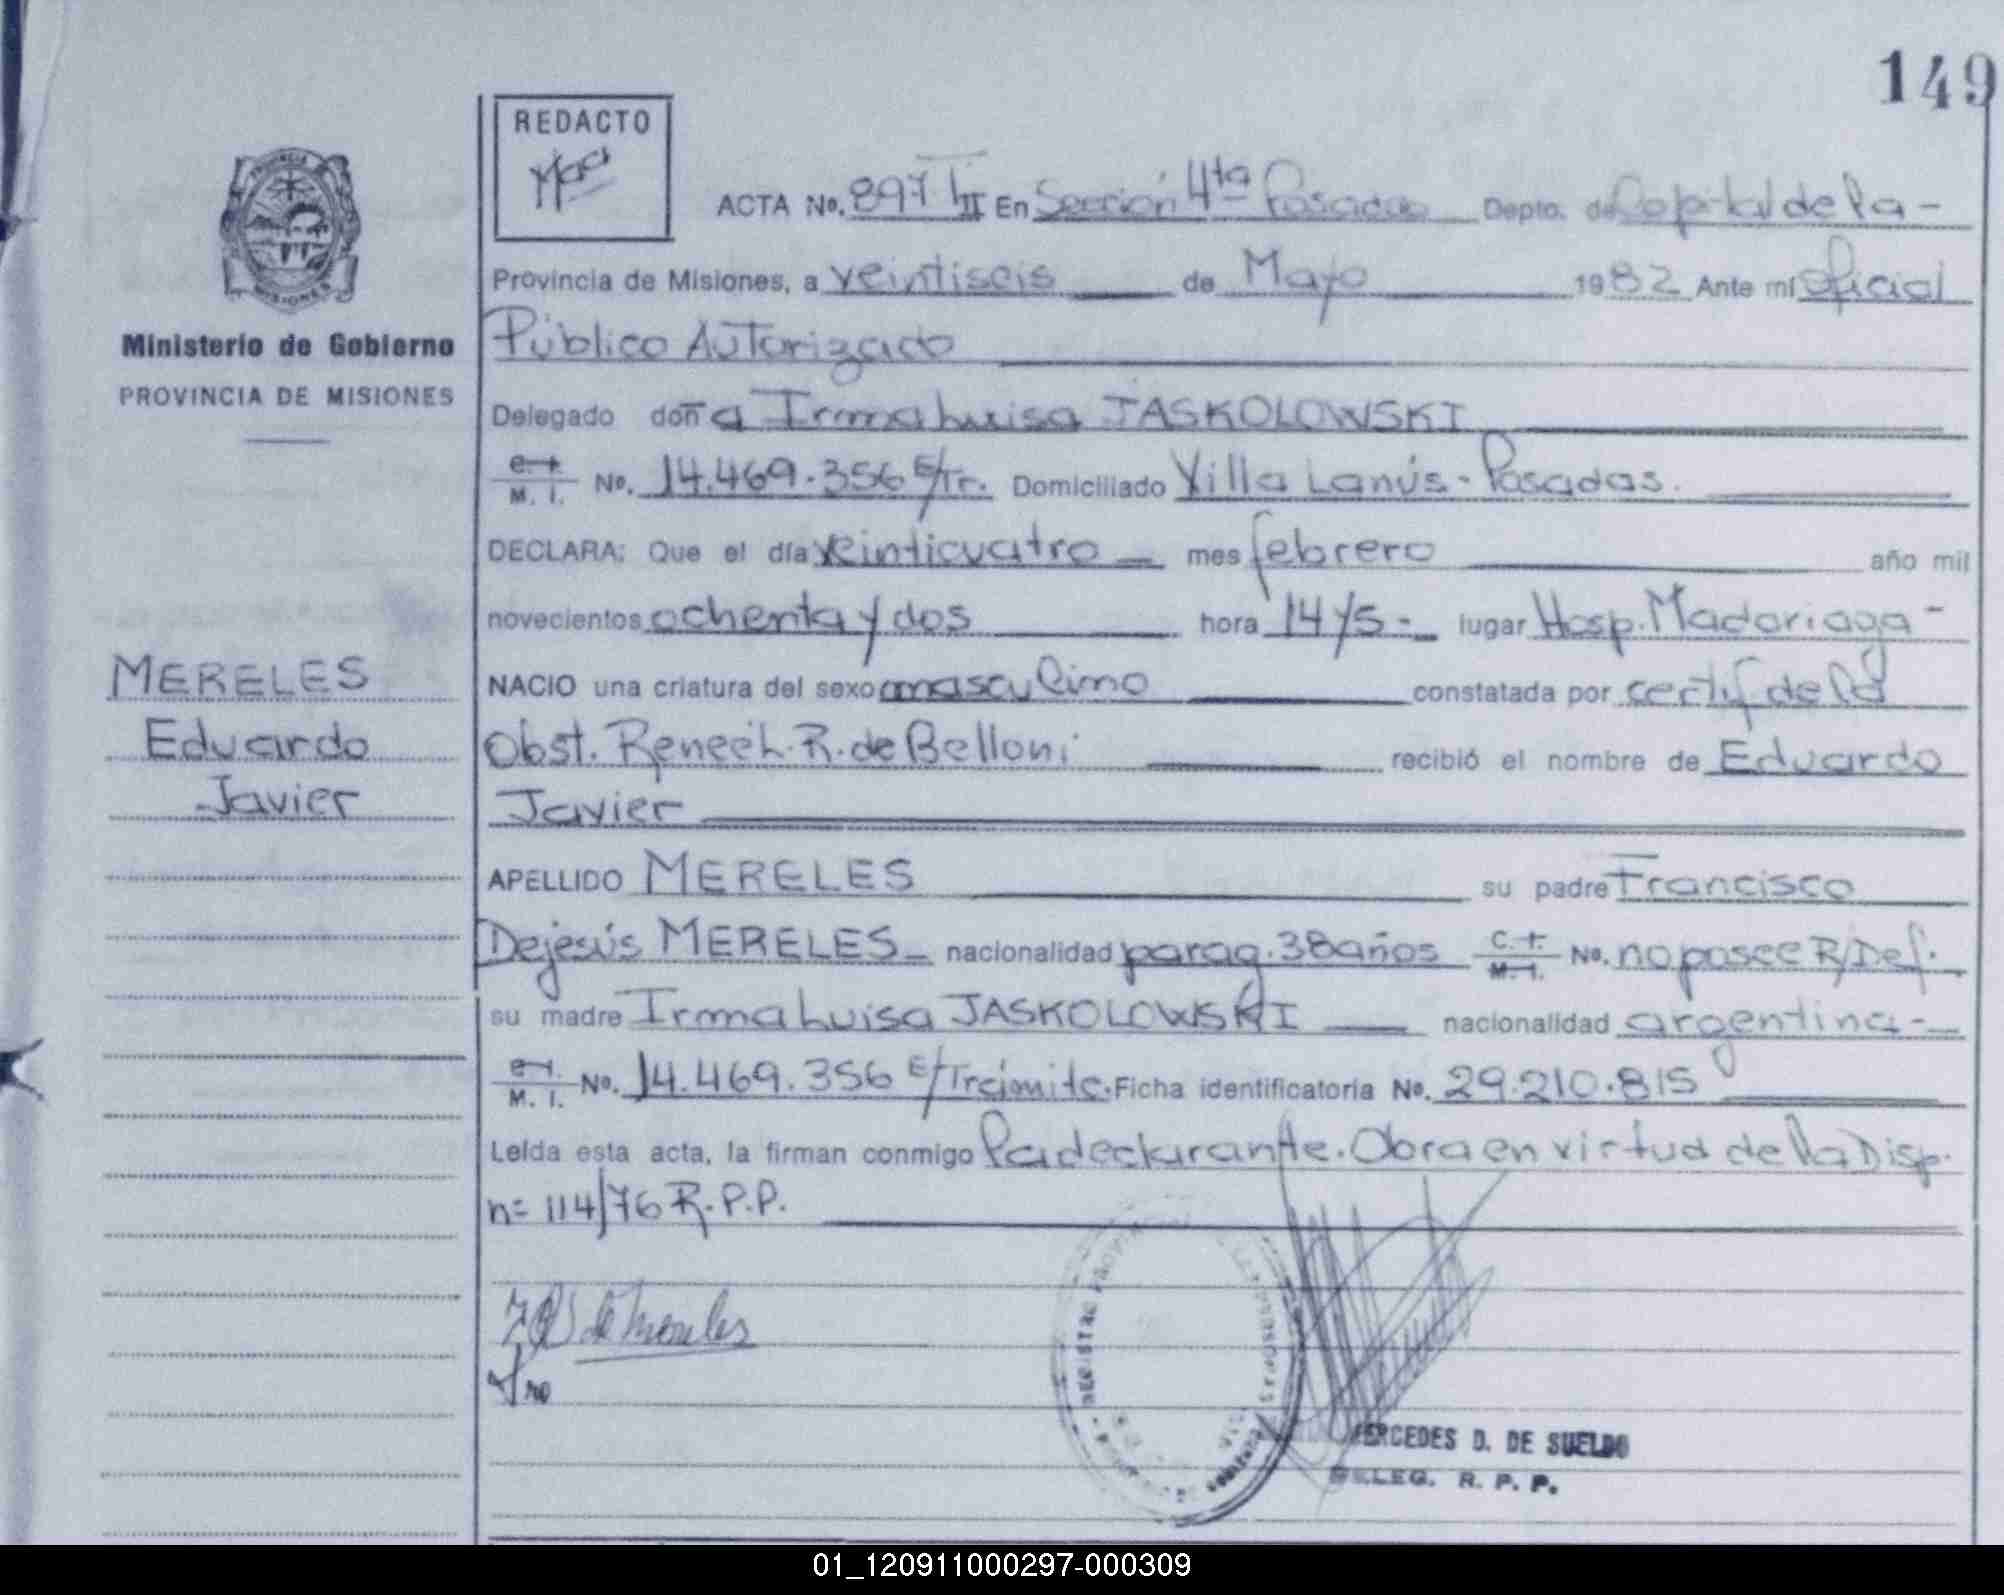 149
REDACTO
ACTA No. 897 T II En Sección 4ta Posadas Depto. de Capital de la -
Provincia de Misiones, a veintiseis de Mayo 1982 Ante mí Oficial
Público Autorizado
Delegado doña Irma Luisa JASKOLOWSKI
M. I. No. 14.469.356 E/Tr. Domiciliado Villa Lanús - Posadas.
DECLARA: Que el día veinticuatro mes febrero año mil
novecientos ochenta y dos hora 14 y 5 - lugar Hosp. Madariaga -
NACIO una criatura del sexo masculino constatada por certif de la
Obst. Renee h. R. de Belloni recibió el nombre de Eduardo
Javier
APELLIDO MERELES su padre Francisco
Dejesús MERELES nacionalidad parag. 38 años C. I. M. I. No. no posee R/Def.
su madre Irma Luisa JASKOLOWSKI nacionalidad argentina -
M. I. No. 14.469.356 E/Trámite. Ficha identificatoria No. 29.210.815
Leída esta acta, la firman conmigo la declarante. Obra en virtud de la Disp.
n= 114/76 R.P.P.
de Mereles
MERCEDES D. DE SUELDO
DELEG. R. P. P.
PROVINCIA
MISIONES
Ministerio de Gobierno
PROVINCIA DE MISIONES
MERELES
Eduardo
Javier
01_120911000297-000309